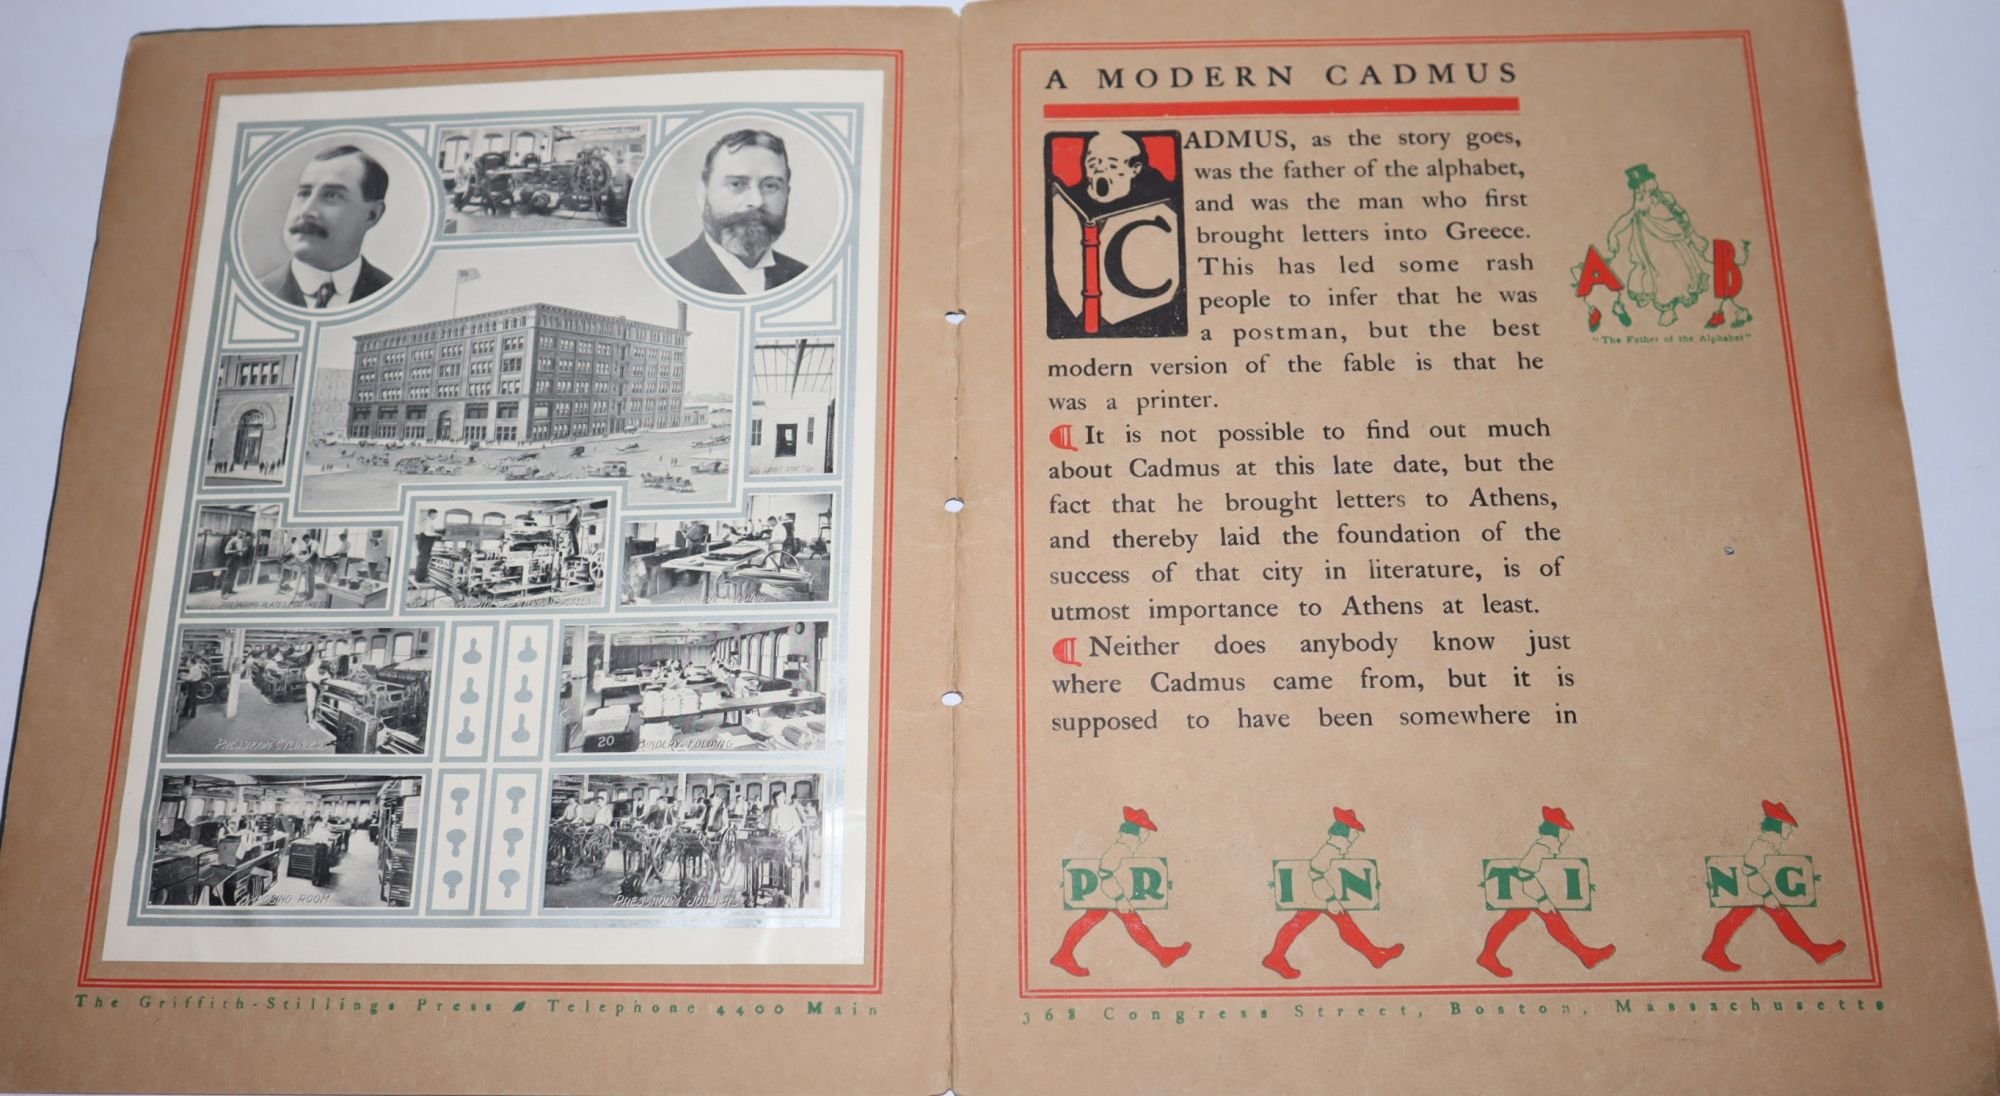 PREPARING PLATES FOR PRESS
BINDERY FOLDING
PRESSROOM CYLINDERS
20
BINDERY FOLDING
COMPOSING ROOM
PRESSROOM JOBBERS
The Griffith-Stillings Press Telephone 4400 Main
A MODERN CADMUS
CADMUS, as the story goes,
was the father of the alphabet,
and was the man who first
brought letters into Greece.
This has led some rash
people to infer that he was
a postman, but the best
modern version of the fable is that he
was a printer.
¶ It is not possible to find out much
about Cadmus at this late date, but the
fact that he brought letters to Athens,
and thereby laid the foundation of the
success of that city in literature, is of
utmost importance to Athens at least.
¶ Neither does anybody know just
where Cadmus came from, but it is
supposed to have been somewhere in
A B
"The Father of the Alphabet"
PR IN TI NG
368 Congress Street, Boston, Massachusetts